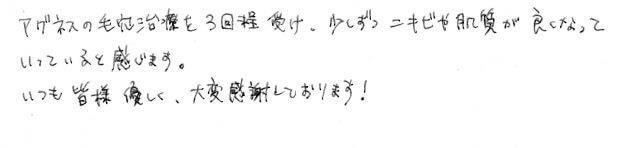 アグネスの毛穴治療を3回程受け、少しずつニキビや肌質が良くなって
いっていると感じます。
いつも皆様優しく、大変感謝しております！